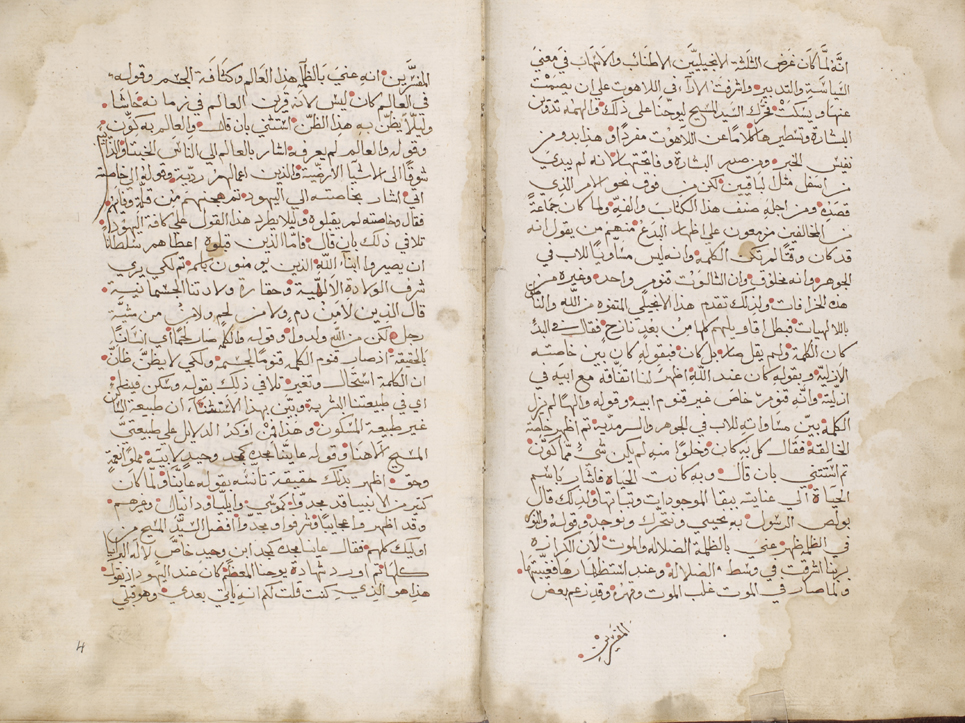 انه لما كان غرض الثلثة الانجيليين الاطناب والاسهاب في معني
السياسة والتدبير واشرفت الاراء في اللاهوت على ان يصمت
عنها ويسكت فحرك السيد المسيح ليوحنا على ذلك والهمه تدوين
البشارة وتسطيرها كلاما عن اللاهوت مفردا وهذا يبدو من
نفس الخبر ومن صدر البشارة وفاتحتها لانه لم يبدي
من اسفل مثل الباقيين لكن من فوق نحو الامر الذي
قصده ومن اجله صنف هذا الكتاب والفه ولما كان جماعة
من المخالفين مزمعون على اظهار البدع منهم من يقول انه
قد كان وقتا لم تكن الكلمة وانه ليس مساويا للاب في
الجوهر وانه مخلوق وان الثالوث قنوم واحد وغيره من
هذه الخرافات ولذلك تقدم هذا الانجيلي المتفوه عن الله والناطق
باللاهيات فبطل اقاويلهم كلها من بعيد نازح فقال في البدء
كان الكلمة ولم يقل صار بل كان فبقوله كان بين خاصته
الازلية وبقوله كان عند الله اظهر لنا اتفاقه مع ابيه في
ازلية وانه قنوم خاص غير قنوم ابيه وقوله والها لم يزل
الكلمة بين مساواته للاب في الجوهر والسرمدية ثم اظهر خلقة
الخالقة فقال كل به كان وخلوا منه لم يكن شي مما كون
ثم استثني بان قال وبه كانت الحياة فاشار باسم
الحياة الى عنايته ببقا الموجودات وثباتها ولذلك قال
بولص الرسول به نحيى ونتحرك ونوجد وقوله والنور
في الظلمة ظهر عني بالظلمة الضلالة والموت لان الكرازه
بربنا اشرقت في وسط الضلالة وعند استظهارها فغيبتها
ولما صار في الموت غلب الموت وقهره وقد زعم بعض
المفسرين
المفسرين انه عني بالظلمة هذا العالم وكثافة الجسم وقوله
في العالم كان ليس لانه قرين العالم في زمانه حاشا
وليلا يظن به هذا الظن استثني بان قال والعالم به كون
وقوله والعالم لم يعرفه اشار بالعالم الي الناس الخبيثا والذايبين
شوقا الى الاشيا الارضية والذين اعمالهم ردية وقوله الى خاصته
اتى اشار بخاصته الى اليهود ثم هجنهم من قلة
فقال وخاصته لم يقبلوه وليلا يطرد هذا القول على كافة اليهود
تلافي ذلك بان قال فاما الذين قبلوه اعطاهم سلطانا
ان يصيروا ابنا الله الذين يومنون باسمه ثم لكي يري
شرف الولادة الالهية وحقارة ولادتنا الجسمانية
قال الذين لا من دم ولا من لحم ولا من مشية
رجل لكن من الله ولدوا وقوله والكلمة صار لحما اي انسانا
بالحقيقة اذ صار قنوم الكلمة قنوما للجسم ولكي لا يظن ظان
ان الكلمة استحال وتغير تلافي ذلك بقوله وسكن فينا
اي في طبيعتنا البشرية وتبين بهذا الاستثناء ان طبيعة الساكن
غير طبيعة المسكون وهذا فمن اوكد الدلايل على طبيعتي
المسيح الاهنا وقوله عاينا مجده كمجد وحيد لابيه مملوا نعمة
وحق اظهر بذلك حقيقة تأنسه بقوله عاينا ولما كان
كثير من الانبيا قد مجدوا كموسى وايليا ودانيال وغيرهم
وقد اظهروا عجايبا وشرفوا ومجدوا افضل السيد المسيح من
اوليك كلهم فقال عاينا مجده كمجد ابن وحيد خاص لاله البرايا
كلها ثم اورد شهادة يوحنا المعظم كان عند اليهود اذ يقول
هذا هو الذي كنت قلت لكم انه ياتي بعدي وهو قبلي
4